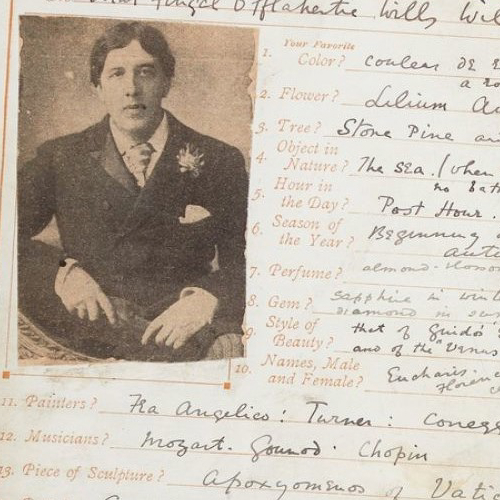 Fingal O'fflahertie Wills Wil
Your Favorite
1. Color? couleur de
2. Flower? Lilium Au
3. Tree? Stone Pine an
4. Object in
Nature? The sea. (when
no bat
5. Hour in
the Day? Post Hour.
6. Season of
the Year? Beginning
autu
7. Perfume? almond-bloss
8. Gem? sapphire in win
diamond in
9. Style of
Beauty? that of Guido's
and of the "Venus
10. Names, Male
and Female? Eucharis
Florence
11. Painters? Fra Angelico: Turner: Coreg
12. Musicians? Mozart. Gounod. Chopin
13. Piece of Sculpture? Apoxyomenos of Vati